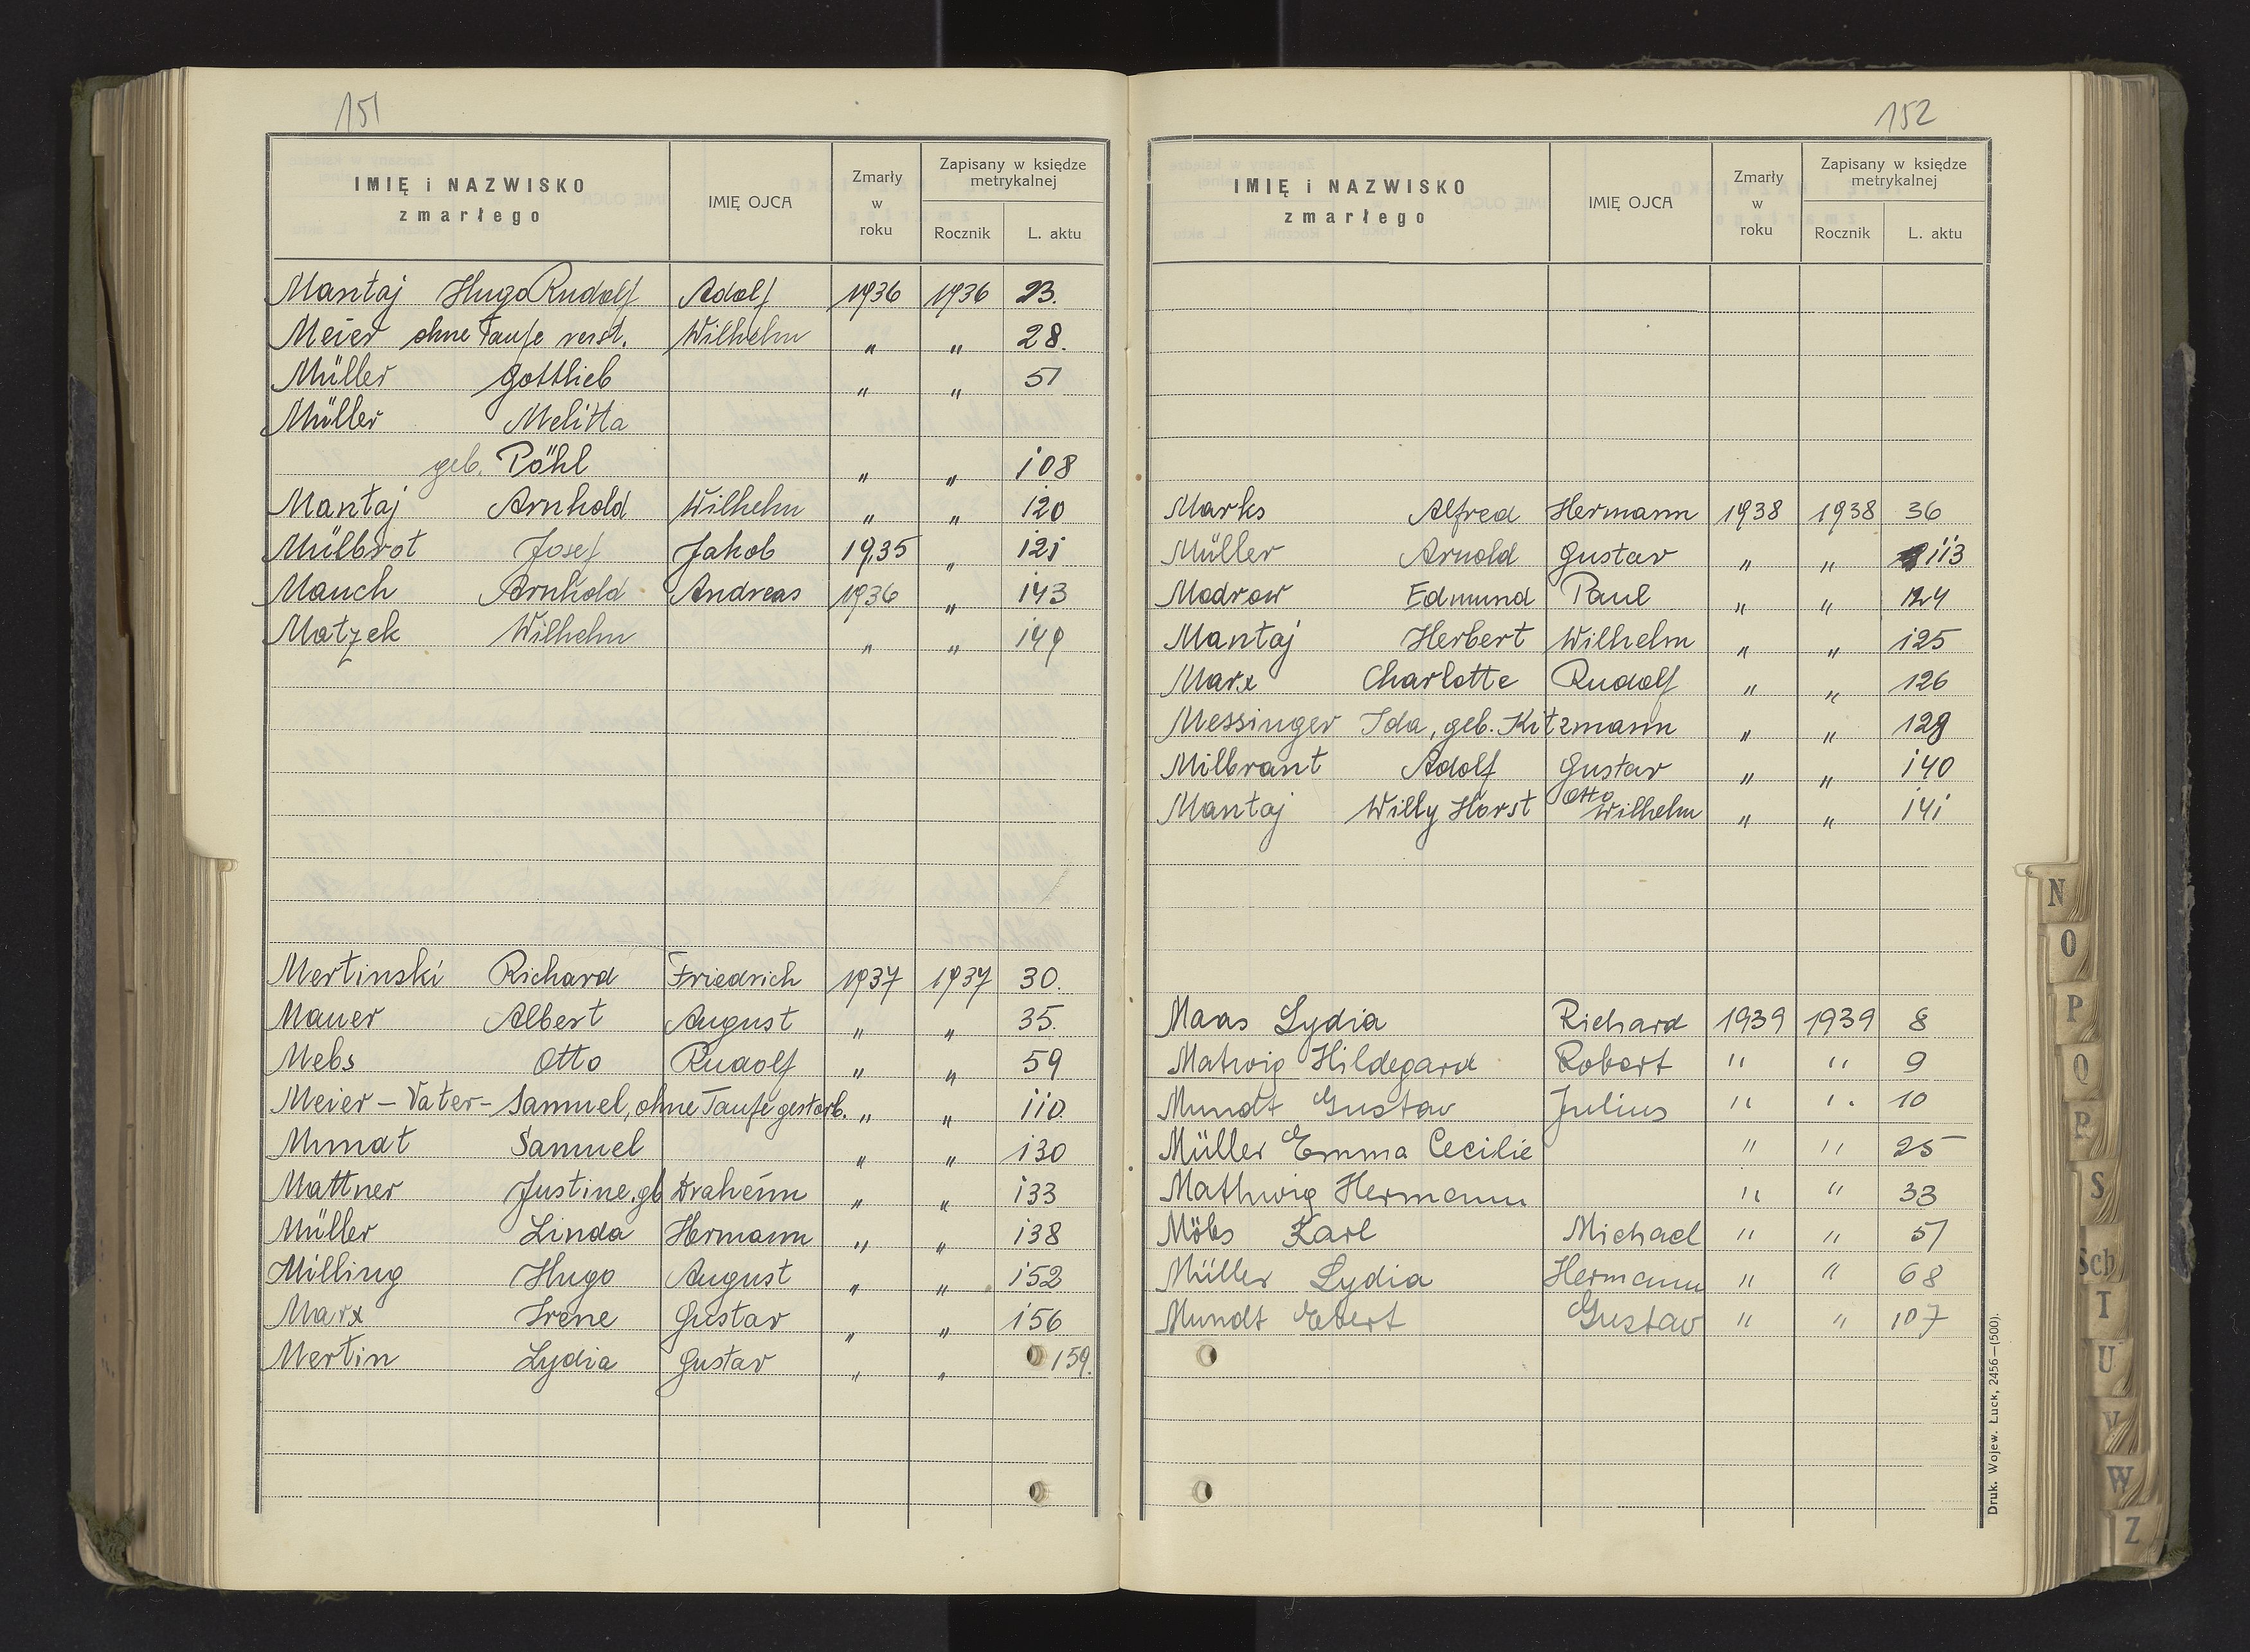 151
IMIĘ i NAZWISKO zmarłego IMIĘ OJCA Zmarły w roku Zapisany w księdze metrykalnej Rocznik L. aktu
Mantaj Hugo Rudolf Adolf 1936 1936 23.
Meier ohne Taufe verst. Wilhelm " " 28.
Müller Gottlieb " " 51
Müller Melitta
geb. Pöhl " " 108
Mantaj Arnhold Wilhelm " " 120
Mülbrot Josef Jakob 1935 " 121
Mauch Arnhold Andreas 1936 " 143
Matzek Wilhelm " " 149
Mertinski Richard Friedrich 1937 1937 30.
Mauer Albert August " " 35.
Mebs Otto Rudolf " " 59
Meier - Vater - Samuel, ohne Taufe gestorb. " " 110
Mundt Samuel " " 130
Mattner Justine, gb Draheim " " 133
Müller Linda Hermann " " 138
Milling Hugo August " " 152
Marx Irene Gustav " " 156
Mertin Lydia Gustav " " 159.
152
IMIĘ i NAZWISKO zmarłego IMIĘ OJCA Zmarły w roku Zapisany w księdze metrykalnej Rocznik L. aktu
Marks Alfred Hermann 1938 1938 36
Müller Arnold Gustav " " 113
Modrow Edmund Paul " " 124
Mantaj Herbert Wilhelm " " 125
Marx Charlotte Rudolf " " 126
Messinger Ida, geb. Kitzmann " " 128
Milbrant Adolf Gustav " " 140
Mantaj Willy Horst Otto Wilhelm " " 141
Maas Lydia Richard 1939 1939 8
Matwig Hildegard Robert " " 9
Mundt Gustav Julius " " 10
Müller Emma Cecilie " " 25
Mathwig Hermann " " 33
Möbs Karl Michael " " 51
Müller Lydia Hermann " " 68
Mundt Gustav " " 107
Druk. Wojew. Łuck, 2456—(500).
N
O
P
Q
R
S
Sch
T
U
V
W
Z